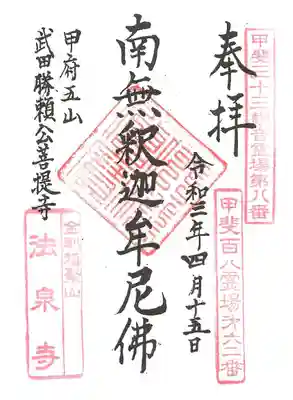 甲斐三十三観音霊場第八番
奉拝
甲斐百八霊場第六二番
令和三年四月十五日
南無釈迦牟尼佛
甲府五山
武田勝頼公菩提寺
金剛福聚山
法泉寺